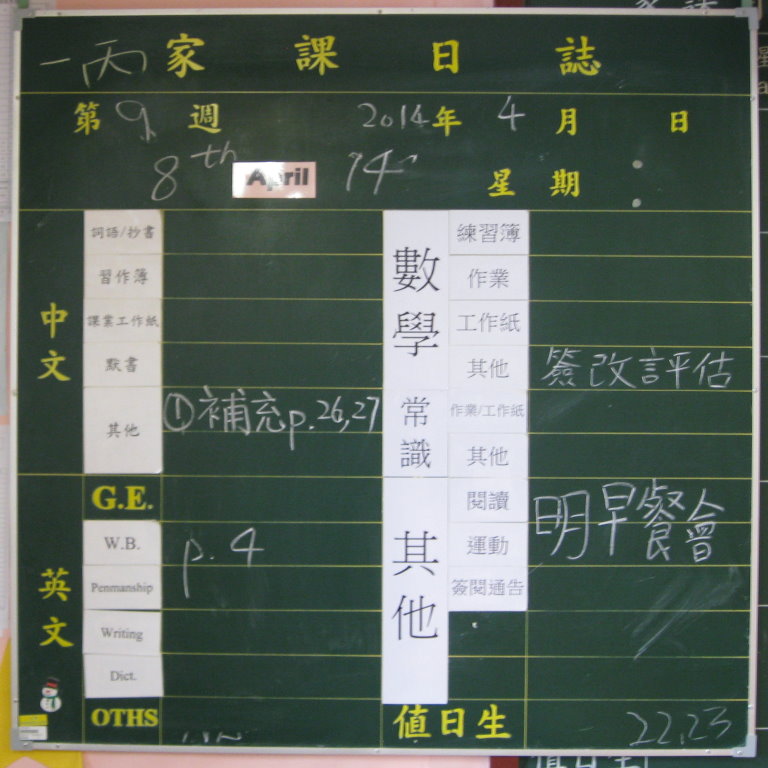 一丙 家課日誌
第 9 週 2014年 4 月 日
8th April 14 星期:
中文
詞語/抄書
習作簿
課業工作紙
默書
其他 ①補充p.26,27
英文
G.E.
W.B. p.4
Penmanship
Writing
Dict.
OTHS
數學
練習簿
作業
工作紙
其他 簽改評估
常識
作業/工作紙
其他
其他
閱讀 明早餐會
運動
簽閱通告
值日生 22,23